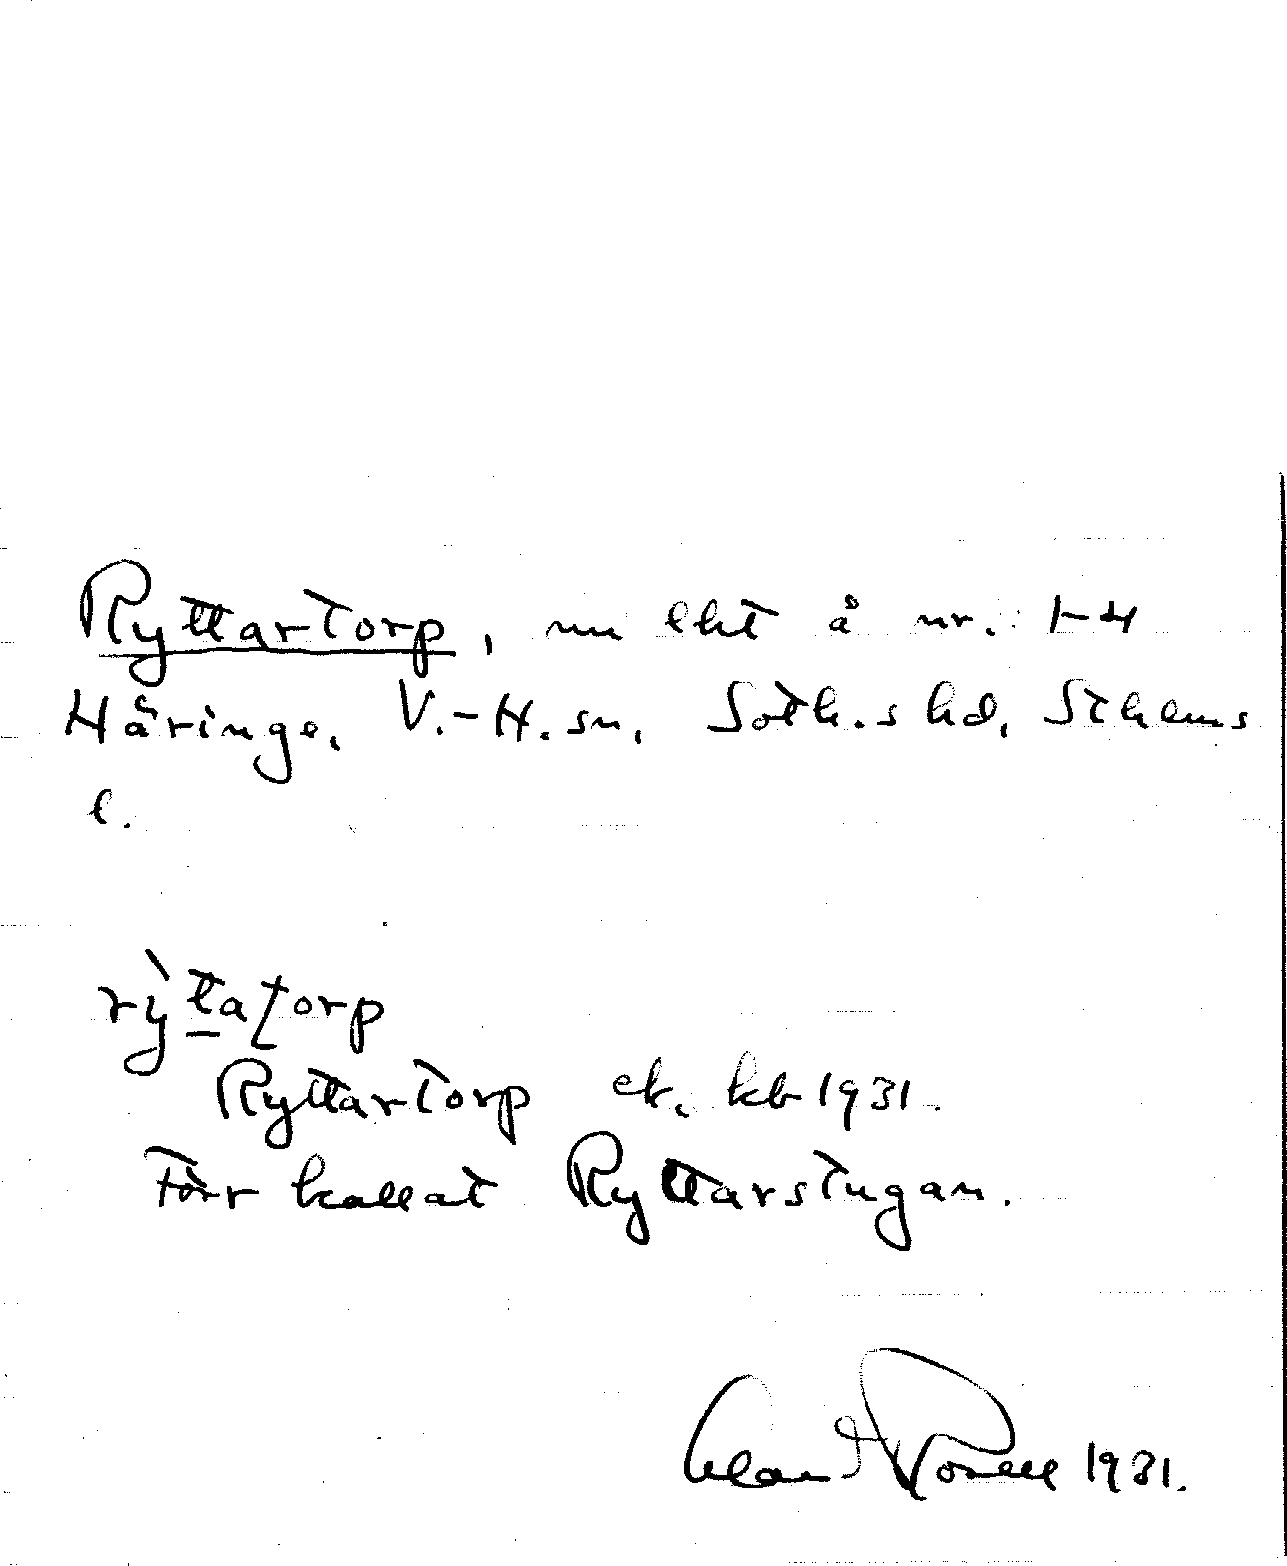 Ryttartorp, nu lht å nr. 1-4
Häringe, V.-H. sn, Soth.s hd, Sthlms
l.
rỳtatorp
Ryttartorp ek. kb 1931.
Förr kallat Ryttarstugan.
1931.